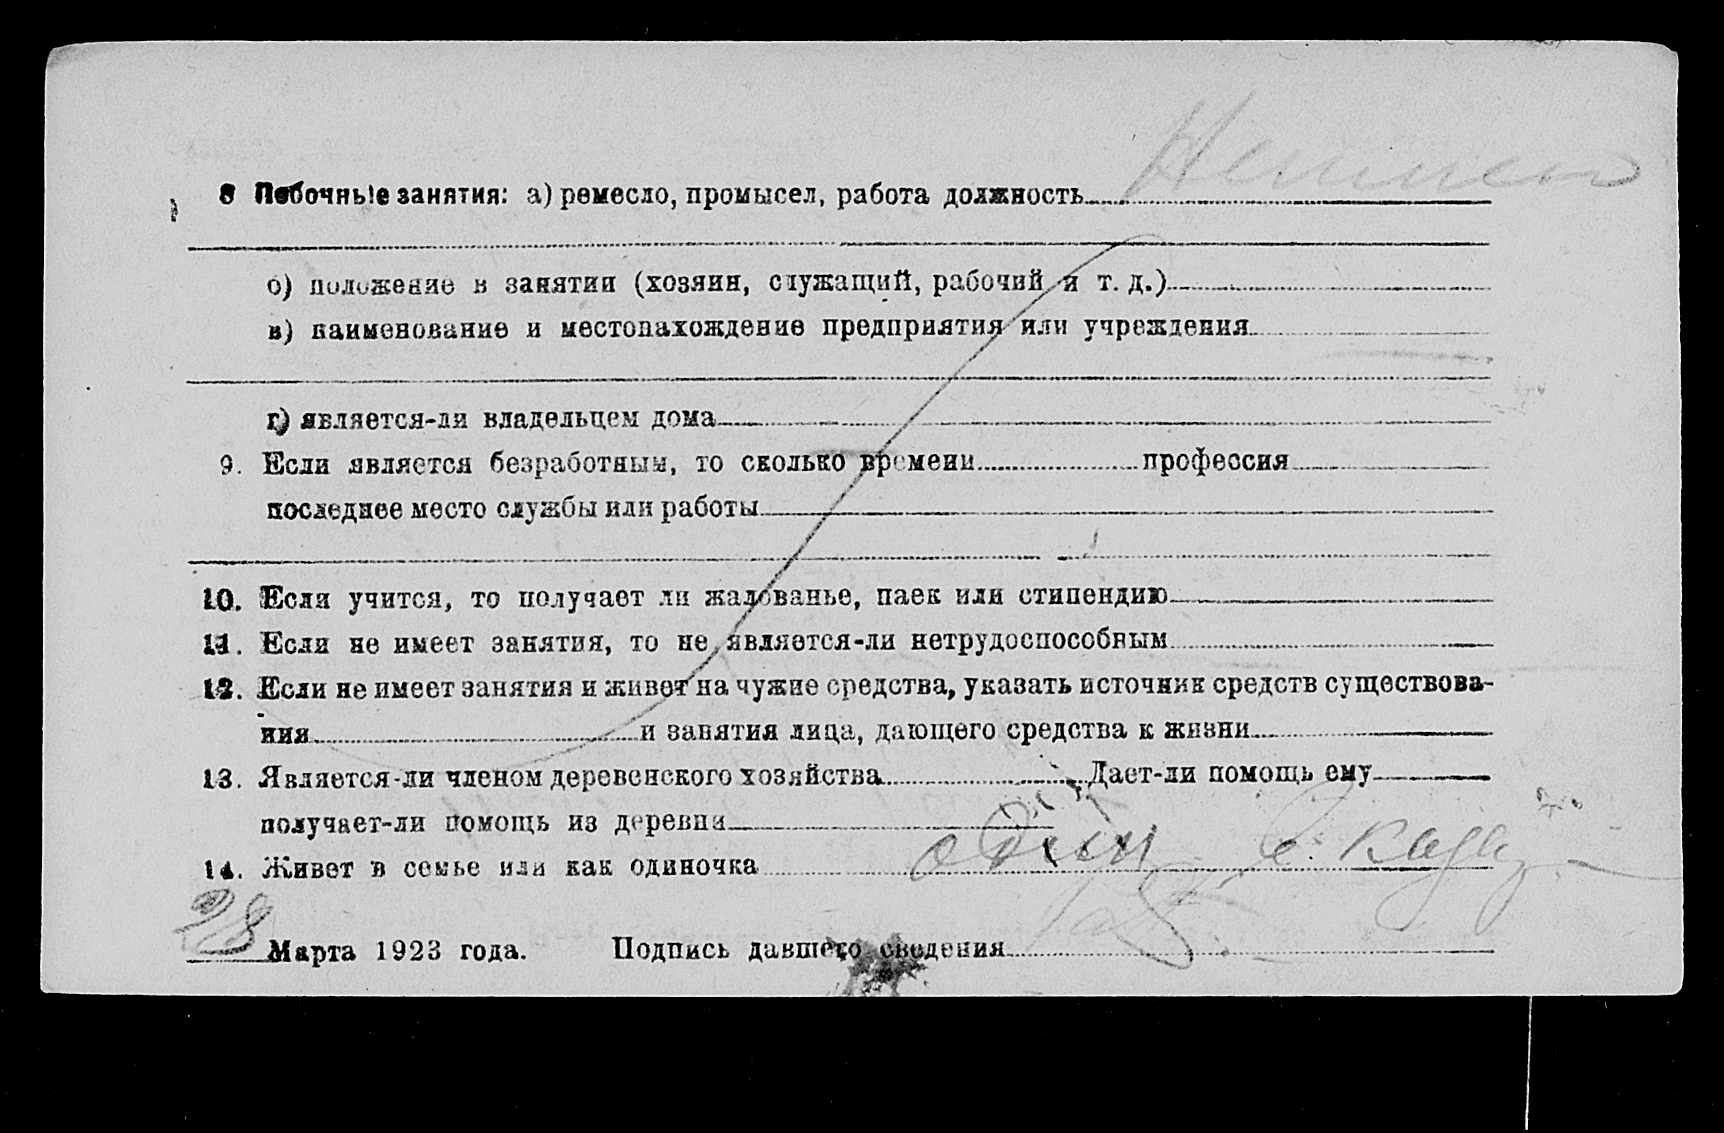 8 Побочные занятия: а) ремесло, промысел, работа должность
б) положение в занятии (хозяин, служащий, рабочий и т. д.)
в) наименование и местонахождение предприятия или учреждения
г) является-ли владельцем дома
9. Если является безработным, то сколько времени профессия
последнее место службы или работы
10. Если учится, то получает ли жалованье, паек или стипендию
11. Если не имеет занятия, то не является-ли нетрудоспособным
12. Если не имеет занятия и живет на чужие средства, указать источник средств существова-
ния и занятия лица, дающего средства к жизни
13. Является-ли членом деревенского хозяйства Дает-ли помощь ему
получает-ли помощь из деревни
14. Живет в семье или как одиночка один
28 Марта 1923 года. Подпись давшего сведения